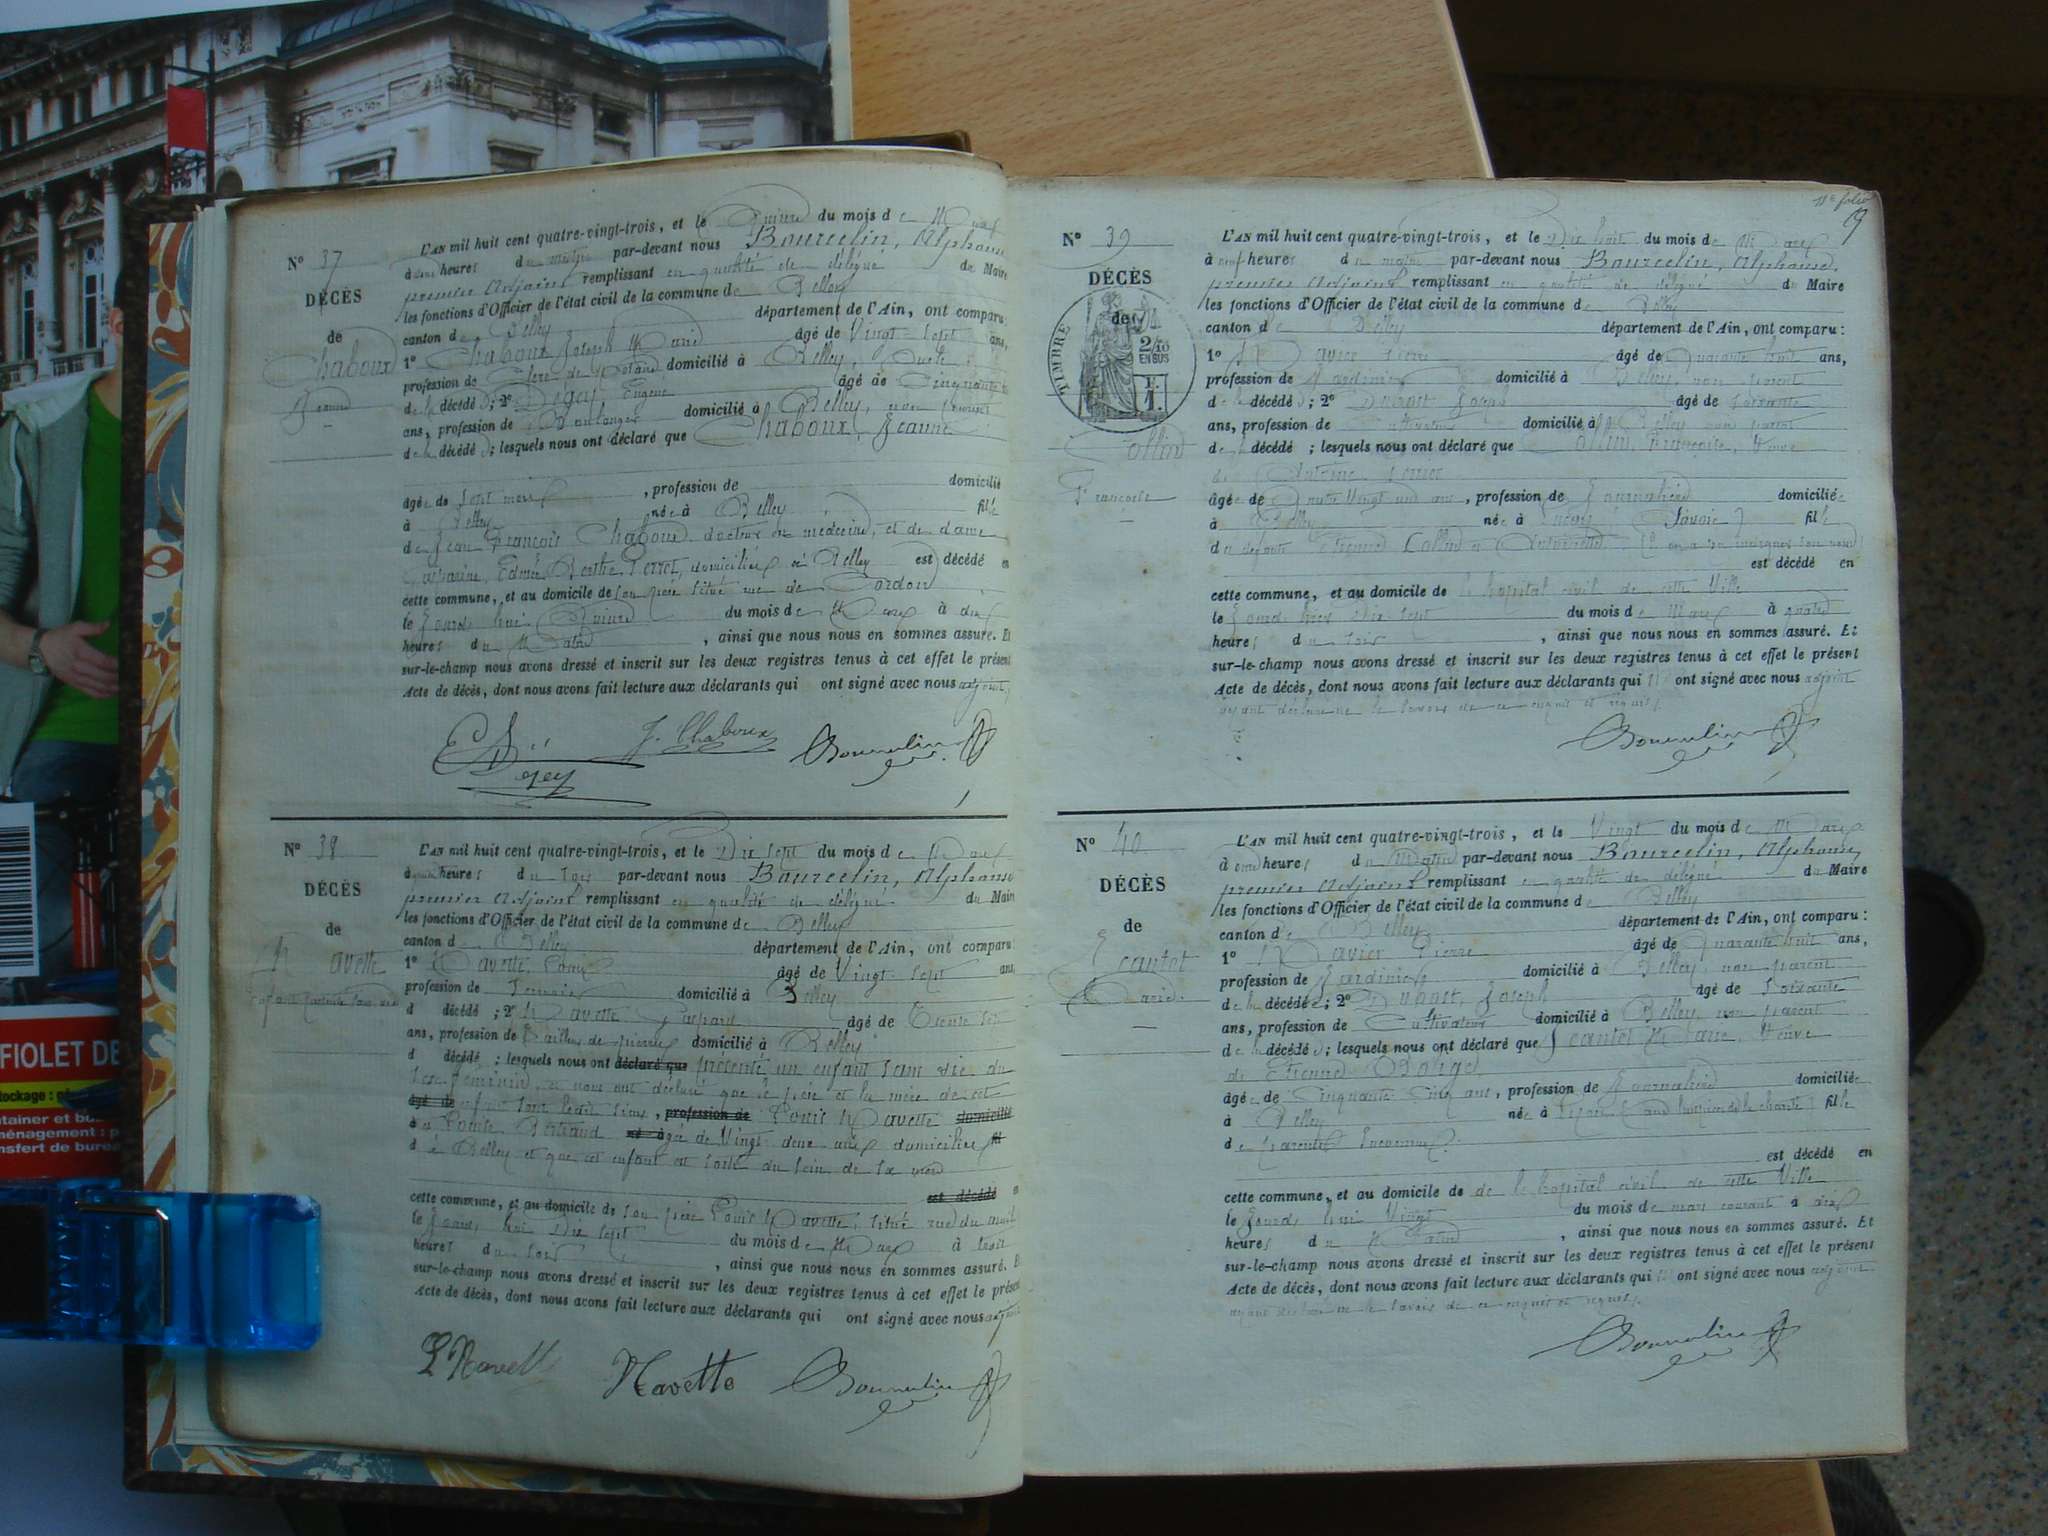 N° 37
DÉCÈS
de
Chaboux
Jeanne
L'AN mil huit cent quatre-vingt-trois, et le Quinze du mois de Mars
à onze heures du matin par-devant nous Bourcelin, Alphonse
premier Adjoint remplissant en qualité de délégué du Maire
les fonctions d'Officier de l'état civil de la commune de Belley
canton de Belley département de l'Ain, ont comparu
1° Chaboux Joseph Marie âgé de Vingt-sept ans,
profession de Clerc de Notaire domicilié à Belley, oncle
de la décédée; 2° Dégey Eugène âgé de Cinquante
ans, profession de Boulanger domicilié à Belley, non parent
de la décédée; lesquels nous ont déclaré que Chaboux, Jeanne
âgée de sept mois, profession de domicilié
à Belley née à Belley fille
de Jean François Chaboux, docteur en médecine, et de dame
Edmée Berthe Perret, domiciliés à Belley est décédé en
cette commune, et au domicile de son père, situé rue de Cordon
le Jourd'hui Quinze du mois de Mars à dix
heures du Matin, ainsi que nous nous en sommes assuré. Et
sur-le-champ nous avons dressé et inscrit sur les deux registres tenus à cet effet le présent
Acte de décès, dont nous avons fait lecture aux déclarants qui ont signé avec nous adjoint,
E. Dégey J. Chaboux Bourcelin
N° 38
DÉCÈS
de
Navette
enfant présenté sans vie
L'AN mil huit cent quatre-vingt-trois, et le Dix sept du mois de Mars
à heures du soir par-devant nous Bourcelin, Alphonse
premier Adjoint remplissant en qualité de délégué du Maire
les fonctions d'Officier de l'état civil de la commune de Belley
canton de Belley département de l'Ain, ont comparu
1° Navette, Louis âgé de Vingt-sept ans
profession de domicilié à Belley
d décédé; 2° Navette Gaspard âgé de Trente sept
ans, profession de Tailleur de pierres domicilié à Belley
d décédé: lesquels nous ont déclaré que présenté un enfant sans vie du
sexe féminin, et nous ont déclaré que le père et la mère de cet
âgé de enfant sont , profession de Louis Navette domicilié
et Bertrand né à âgée de Vingt-deux ans domiciliés fil
d à Belley et que cet enfant est sorti du sein de sa mère
est décédé en
cette commune, et au domicile de son père Louis Navette, situé rue du
le Jourd'hui Dix sept du mois de Mars à trois
heures du soir, ainsi que nous nous en sommes assuré. Et
sur-le-champ nous avons dressé et inscrit sur les deux registres tenus à cet effet le présent
Acte de décès, dont nous avons fait lecture aux déclarants qui ont signé avec nous adjoint
L Navette Navette Bourcelin
11e folio
N° 39
DÉCÈS
de
TIMBRE
2/10 EN SUS
Collin
Françoise
L'AN mil huit cent quatre-vingt-trois, et le Dix huit du mois de Mars
à neuf heures du matin par-devant nous Bourcelin, Alphonse,
premier Adjoint remplissant en qualité de délégué du Maire
les fonctions d'Officier de l'état civil de la commune de Belley
canton de Belley département de l'Ain, ont comparu:
1° Pierre âgé de Quarante huit ans,
profession de Jardinier domicilié à Belley, non parent
de la décédée; 2° Dubost Joseph âgé de Soixante
ans, profession de Cultivateur domicilié à Belley non parent
de la décédée; lesquels nous ont déclaré que Collin Françoise, Veuve
de Antoine
âgée de Quatre Vingt un ans, profession de Journalière domiciliée
à Belley née à (Savoie) fille
de défunts Etienne Collin et Antoinette (l'on a pu indiquer son nom)
est décédé en
cette commune, et au domicile de le hopital civil de cette Ville
le dix sept du mois de Mars à quatre
heures du soir, ainsi que nous nous en sommes assuré. Et
sur-le-champ nous avons dressé et inscrit sur les deux registres tenus à cet effet le présent
Acte de décès, dont nous avons fait lecture aux déclarants qui ont signé avec nous adjoint
ayant déclaré ne le savoir de ce enquis et requis.
Bourcelin
N° 40
DÉCÈS
de
Ecantot
Marie
L'AN mil huit cent quatre-vingt-trois, et le Vingt du mois de Mars
à onze heures du Matin par-devant nous Bourcelin, Alphonse,
premier Adjoint remplissant en qualité de délégué du Maire
les fonctions d'Officier de l'état civil de la commune de Belley
canton de Belley département de l'Ain, ont comparu:
1° Pierre âgé de Quarante huit ans,
profession de Jardinier domicilié à Belley, non parent
de la décédée; 2° Dubost, Joseph âgé de Soixante
ans, profession de Cultivateur domicilié à Belley, non parent
de la décédée; lesquels nous ont déclaré que Ecantot Marie, Veuve
de Etienne
âgée de Cinquante cinq ans, profession de Journalière domiciliée
à Belley née à Lyon (aux hospices de la charité) fille
de parents Inconnus.
est décédé en
cette commune, et au domicile de de le hopital civil de cette Ville
le Jourd'hui Vingt du mois de mars courant à dix
heures du Matin, ainsi que nous nous en sommes assuré. Et
sur-le-champ nous avons dressé et inscrit sur les deux registres tenus à cet effet le présent
Acte de décès, dont nous avons fait lecture aux déclarants qui ont signé avec nous adjoint
ayant déclaré ne le savoir de ce enquis et requis.
Bourcelin
FIOLET DE
tockage :
tainer et bu
ménagement :
nsfert de bure